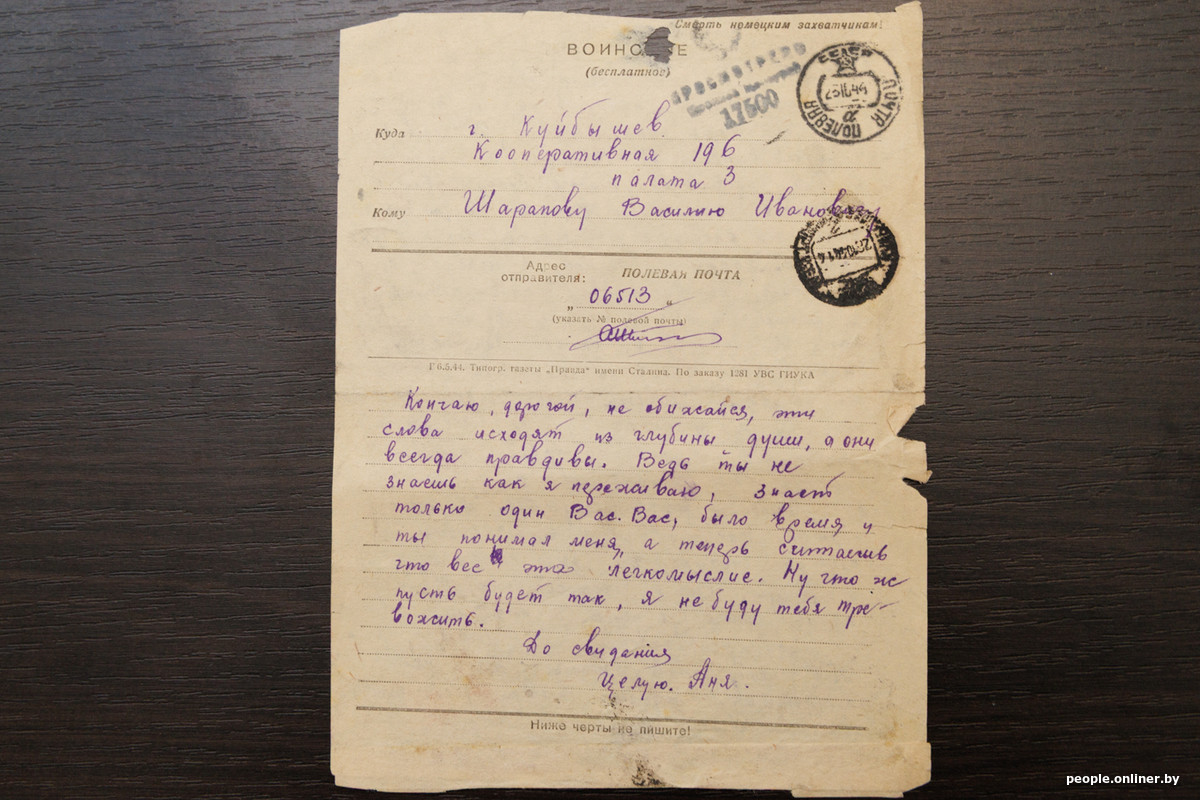 Смерть немецким захватчикам!
ВОИНСКОЕ
(бесплатное)
ПРОСМОТРЕНО
17500
ПОЛЕВАЯ ПОЧТА
Куда г. Куйбышев
Кооперативная 196
палата 3
Кому Шарапову Василию Ивановичу
Адрес отправителя: ПОЛЕВАЯ ПОЧТА
„ 06513 “
(указать № полевой почты)
Г 6.5.44. Типогр. газеты „Правда“ имени Сталина. По заказу 1281 УВС ГИУКА
Кончаю, дорогой, не обижайся, эти
слова исходят из глубины души, а они
всегда правдивы. Ведь ты не
знаешь как я переживаю, знает
только один Вас. Вас, было время и
ты понимал меня, а теперь считаешь
что все это легкомыслие. Ну что ж
пусть будет так, я не буду тебя тре-
вожить.
До свидания
Целую. Аня.
Ниже черты не пишите!
people.onliner.by